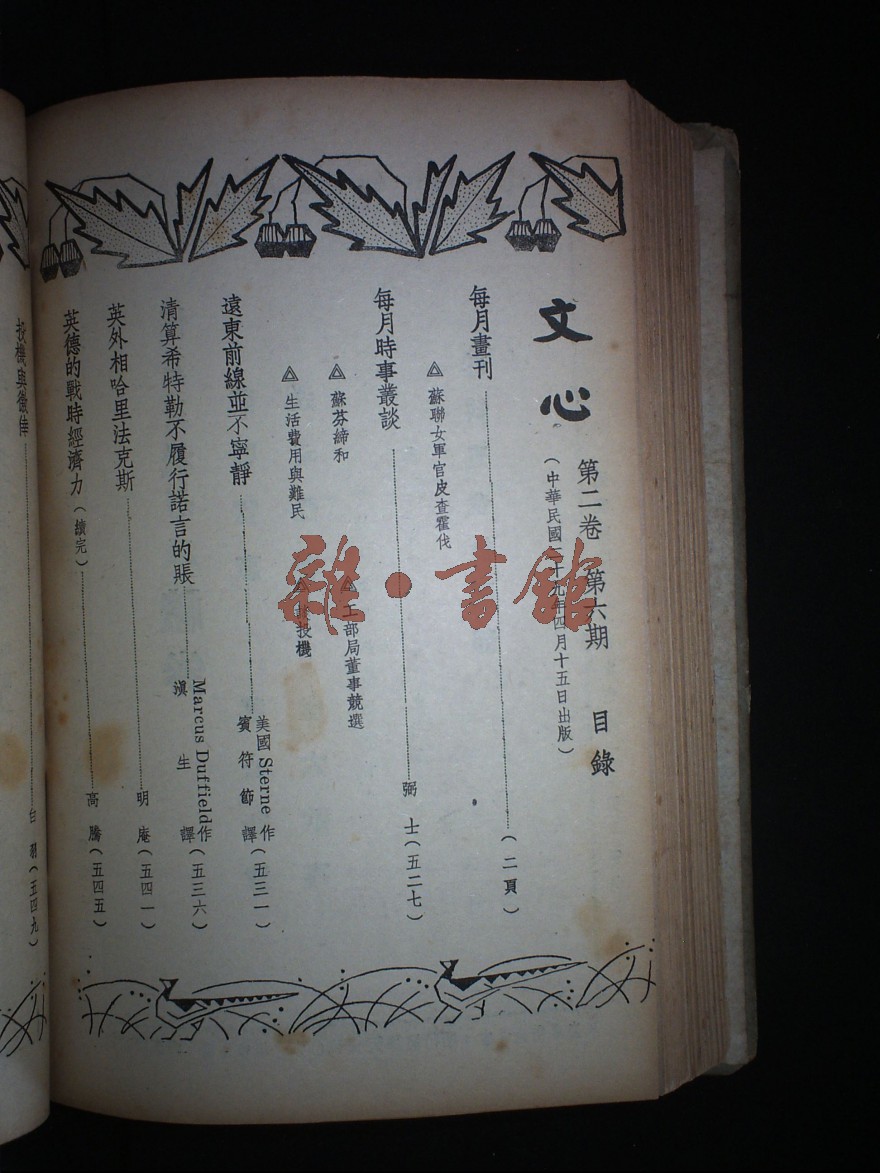 文心 第二卷 第六期 目錄
(中華民國二十九年四月十五日出版)
每月畫刊 (二頁)
△ 蘇聯女軍官皮查霍伐
每月時事叢談 弼士(五二七)
△ 蘇芬締和 △ 工部局董事競選
△ 生活費用與難民 △ 談投機
遠東前線並不寧靜 美國 Sterne 作 賓符節譯(五三一)
清算希特勒不履行諾言的賬 Marcus Duffield 作 滇生譯(五三六)
英外相哈里法克斯 明庵(五四一)
英德的戰時經濟力(續完) 高騰(五四五)
投機與僥倖 白(五四九)
雜·書館